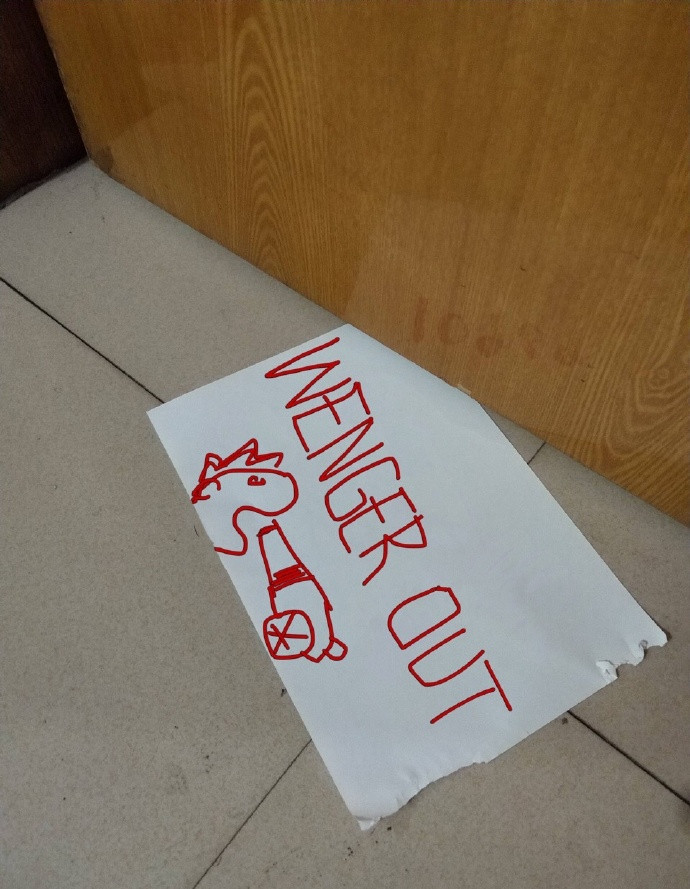 WENGER OUT